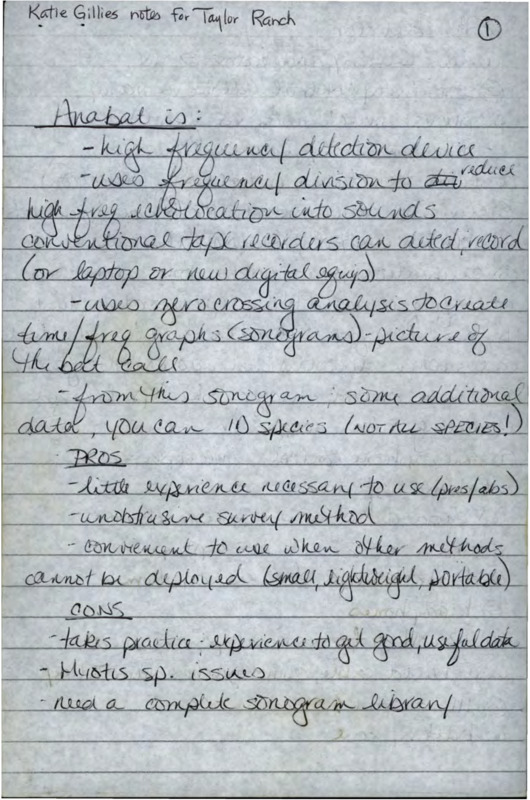 Katie Gillies notes for Taylor Ranch
1
Anabat is:
- high frequency detection device
- uses frequency division to reduce
high freq echolocation into sounds
conventional tape recorders can detect, record
(or laptop or new digital equip)
- uses zero crossing analysis to create
time/freq graphs (sonograms) - picture of
the bat call
- from this sonogram & some additional
data, you can ID species (NOT ALL SPECIES!)
PROS
- little experience necessary to use (pres/abs)
- unobtrusive survey method
- convenient to use when other methods
cannot be deployed (small, lightweight, portable)
CONS
- takes practice & experience to get good, useful data
- Myotis sp. issues
- need a complete sonogram library